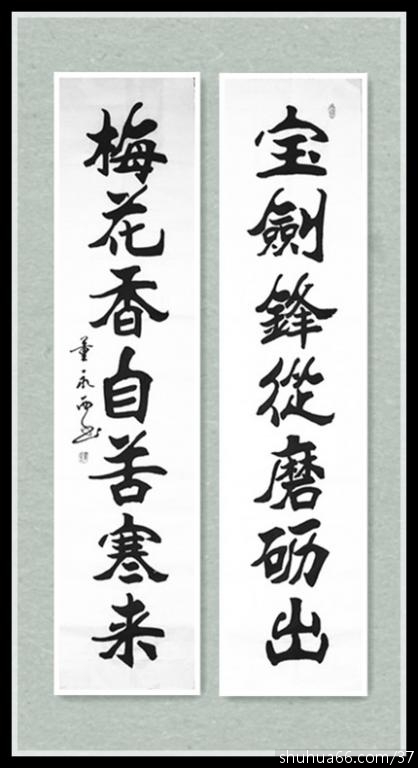 宝劍鋒從磨砺出
梅花香自苦寒来
董永西书
shuhua66.com/37